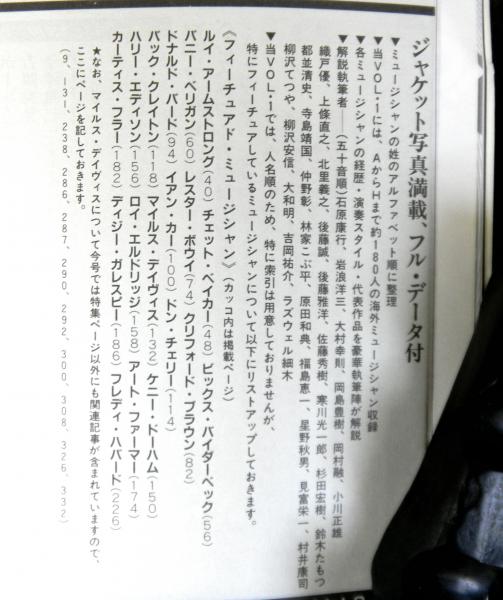 ジャケット写真満載、フル・データ付
▼ミュージシャンの姓のアルファベット順に整理
▼当VOL・1には、AからHまで約180人の海外ミュージシャン収録
▼各ミュージシャンの経歴・演奏スタイル・代表作品を豪華執筆陣が解説
▼解説執筆者――(五十音順)石原康行、岩浪洋三、大村幸則、岡島豊樹、岡村融、小川正雄
織戸優、上條直之、北里義之、後藤誠、後藤雅洋、佐藤秀樹、寒川光一郎、杉田宏樹、鈴木たもつ
都並清史、寺島靖国、仲野彰、林家こぶ平、原田和典、福島恵一、星野秋男、見富栄一、村井康司
柳沢てつや、柳沢安信、大和明、吉岡祐介、ラズウェル細木
▼当VOL・1では、人名順のため、特に索引は用意しておりませんが、
特にフィーチュアしているミュージシャンについて以下にリストアップしておきます。
《フィーチュアド・ミュージシャン》(カッコ内は掲載ページ)
ルイ・アームストロング(40) チェット・ベイカー(48) ビックス・バイダーベック(56)
バニー・ベリガン(60) レスター・ボウイ(74) クリフォード・ブラウン(82)
ドナルド・バード(94) イアン・カー(100) ドン・チェリー(114)
バック・クレイトン(118) マイルス・デイヴィス(132) ケニー・ドーハム(150)
ハリー・エディソン(156) ロイ・エルドリッジ(158) アート・ファーマー(174)
カーティス・フラー(182) ディジー・ガレスピー(186) フレディ・ハバード(226)
★なお、マイルス・デイヴィスについて今号では特集ページ以外にも関連記事が含まれていますので、
ここにページを記しておきます。
(9、131、238、286、287、290、292、300、308、326、332)